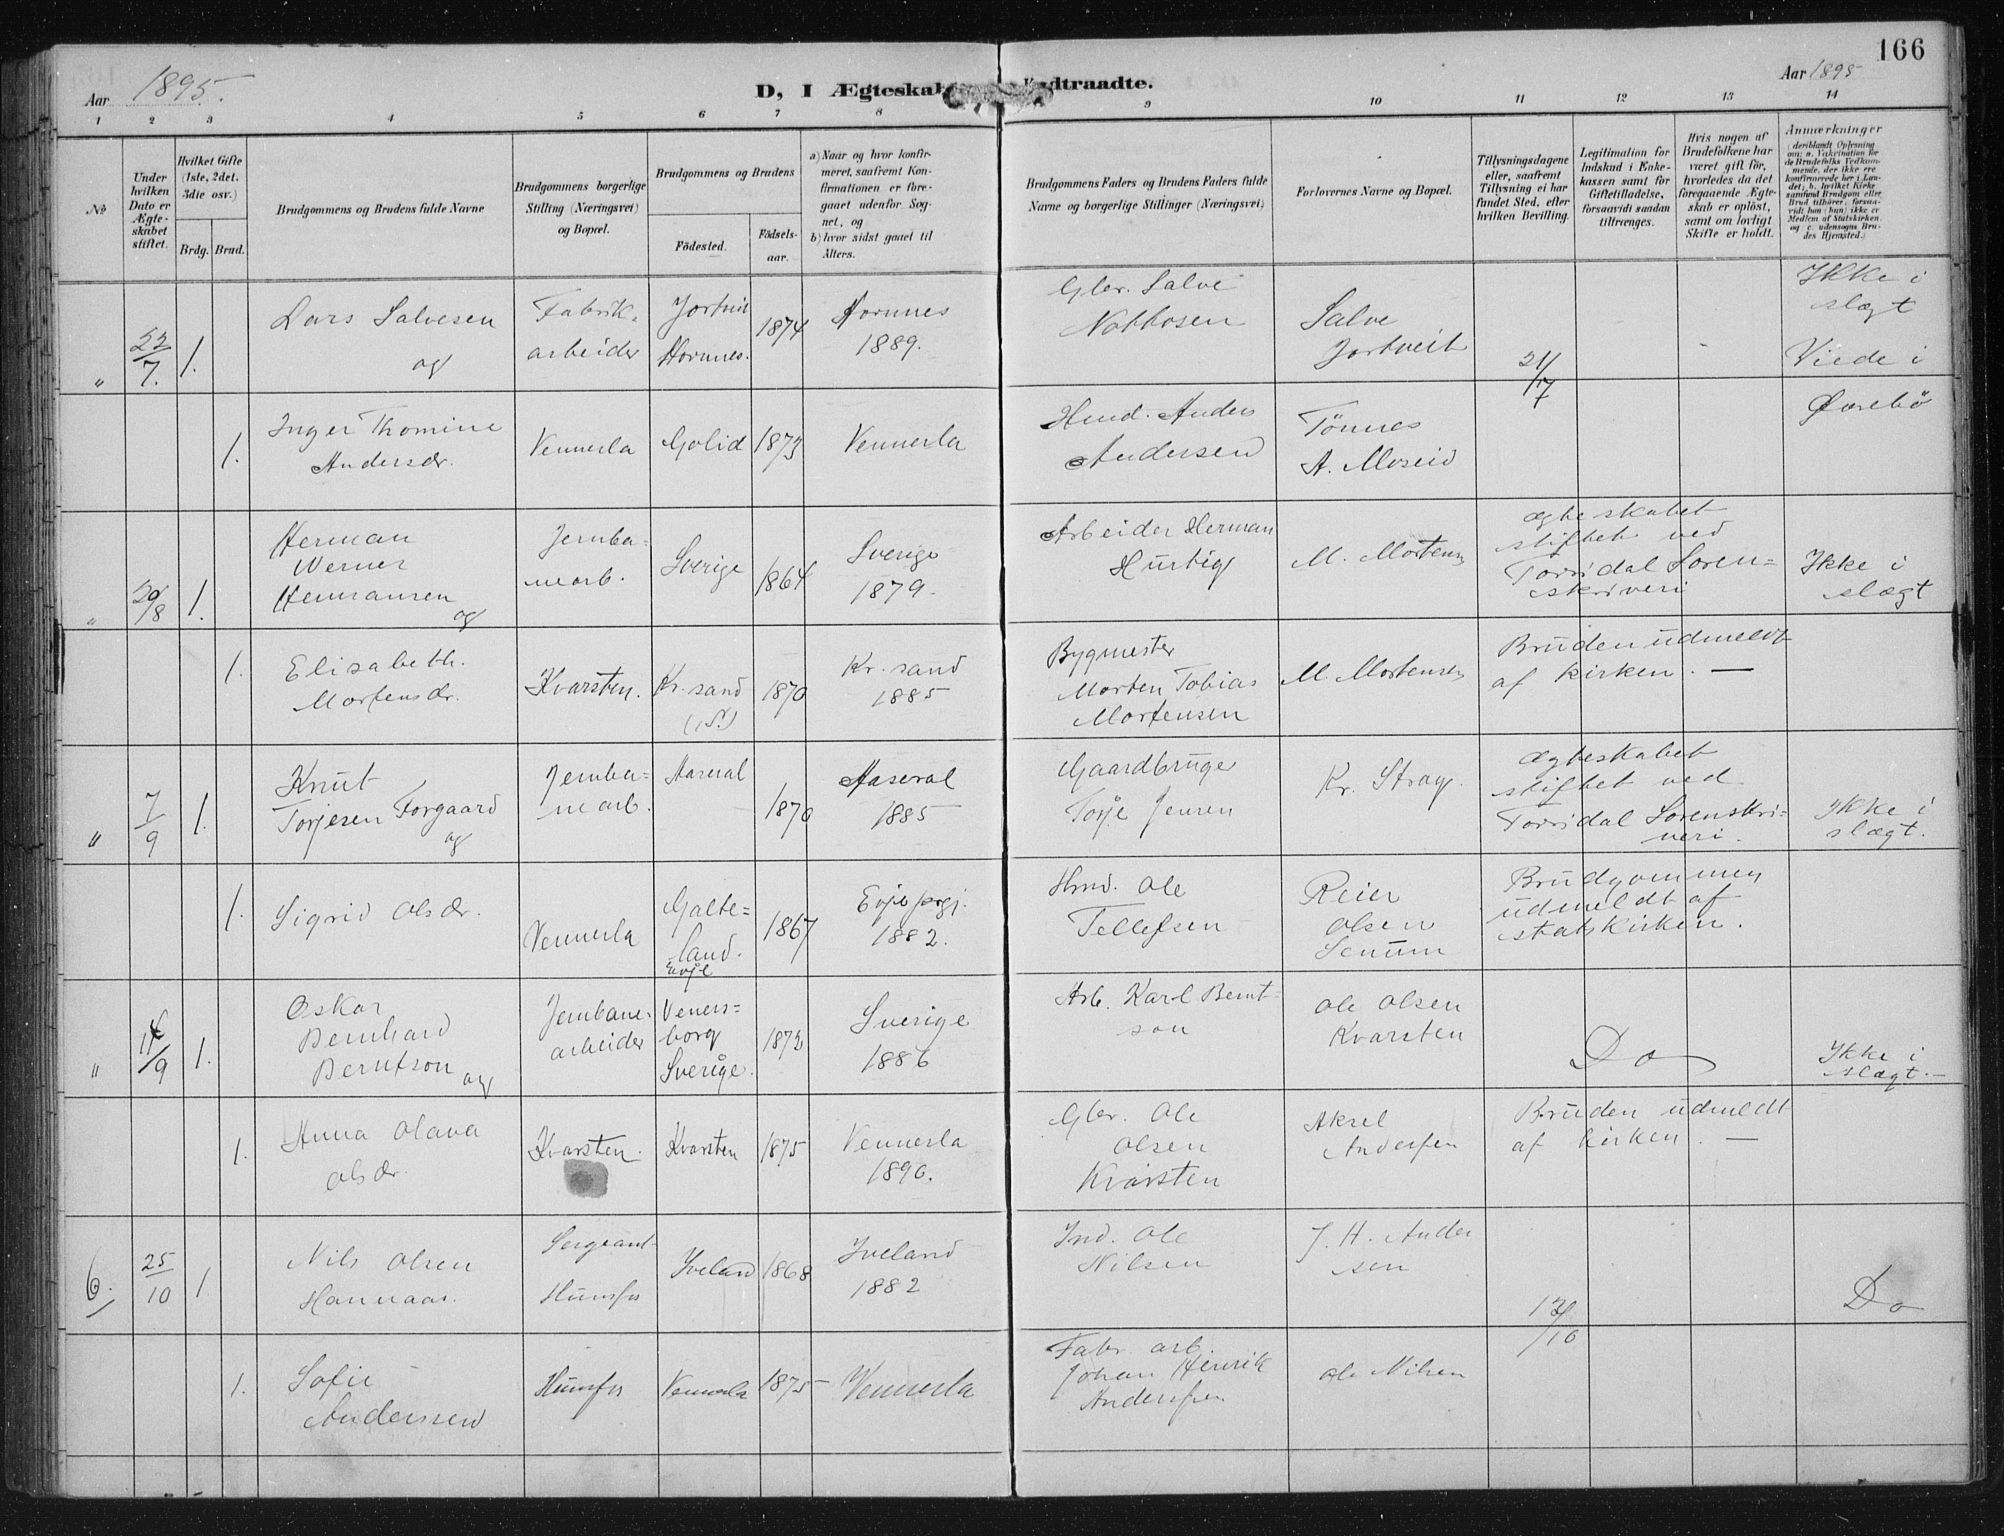 166
Aar 1895.
D, I Ægteskab
Indtraadte.
Aar 1895
1 2 3 4 5 6 7 8 9 10 11 12 13 14
No
Under hvilken Dato er Ægteskabet stiftet.
Hvilket Gifte (1ste, 2det, 3die osv.)
Brdg. Brud.
Brudgommens og Brudens fulde Navne
Brudgommens borgerlige Stilling (Næringsvei) og Bopæl.
Brudgommens og Brudens
Födested.
Födsels-aar.
a) Naar og hvor konfirmeret, saafremt Konfirmationen er foregaaet udenfor Sognet, og
b) hvor sidst gaaet til Alters.
Brudgommens Faders og Brudens Faders fulde Navne og borgerlige Stillinger (Næringsvei)
Forlovernes Navne og Bopæl.
Tillysningsdagene eller, saafremt Tillysning ei har fundet Sted, efter hvilken Bevilling.
Legitimation for Indskud i Enkekassen samt for Giftetilladelse, forsaavidt saadan tiltrænges.
Hvis nogen af Brudefolkene har været gift før, hvorledes da det foregaaende Ægteskab er oplöst, samt om lovligt Skifte er holdt.
Anmærkninger
(deriblandt Oplysning om: a. Vakcination for de Brudefolks Vedkommende, der ikke ere konfirmerede her i Landet; b. hvilket Kirkesamfund Brudgom eller Brud tilhører, forsaavidt han (hun) ikke er Medlem af Statskirken, og c. udensogns Brudes Hjemsted.)
" 22/7. 1. Lars Salvesen og
Fabrik-arbeider
Hornnes.
1874
Hornnes 1889.
Gbr. Salve
Salve Jortveit
21/7
Ikke i slægt
Viede i Øvrebö
1. Inger Tomine Andersdr.
Vennerla
Golid
1873
Vennerla
Anders Andersen
Tönnes A. Moseid
" 20/8 1. Herman Werner Hermansen og
Jernba=nearb.
Sverige
1864
Sverige 1879.
Arbeider Herman Hurtig
M. Mortensen
Ægteskabet stiftet ved Torridal Soren=skriveri
Ikke i slægt
1. Elisabeth. Mortensdr.
Kvarsten.
Kr.sand
1870
Kr.sand 1885
Bygmester Morten Tobias Mortensen
M. Mortensen
Bruden udmeldt af kirken. —
" 7/9 1. Knut Torjesen Forgaard og
Jernba=nearb.
Aaseral
1870
Aaseral 1885
Gaardbruger Torje Jensen
Kr. Stray.
Ægteskabet stiftet ved Torridal Sorenskri=veri.
Ikke i slægt.
1. Sigrid Olsdr.
Vennerla
Galte=land. Evje
1867
Evje prgj. 1882.
Ole Tellefsen
Reier Olsen Senum
Brudgommen udmeldt af statskirken.
" 14/9 1. Oskar Bernhard Berntson og
Jernbane=arbeider
Veners=borg Sverige.
1873
Sverige 1886
Arb. Karl Bernt=son
Ole Olsen Kvarsten
Do
Ikke i slægt. —
1. Anna Olava Olsdr.
Kvarsten.
Kvarsten
1875
Vennerla 1890.
Gbr. Ole Olsen Kvarsten
Aksel Anderssen
Bruden udmeldt af kirken. —
6. 25/10 1 Nils Olsen Hannaas.
Sergeant Hunsfos
Iveland
1868
Iveland 1882
Ind. Ole Nilsen
J. H. Andersen
Do
1. Sofie Anderssen
Hunsfos
Vennerla
1875
Vennerla
Fabr. arb. Johan Henrik Anderssen
Ole Nilsen